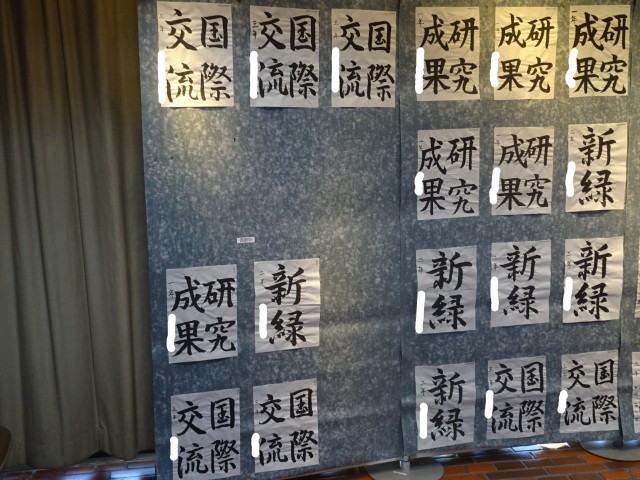 国際
交流
国際
交流
三年
国際
交流
研究
成果
一年
新緑
二年
国際
交流
国際
交流
研究
成果
研究
成果
研究
成果
一年
研究
成果
研究
成果
新緑
二年
新緑
二年
新緑
新緑
二年
新緑
二年
国際
交流
国際
交流